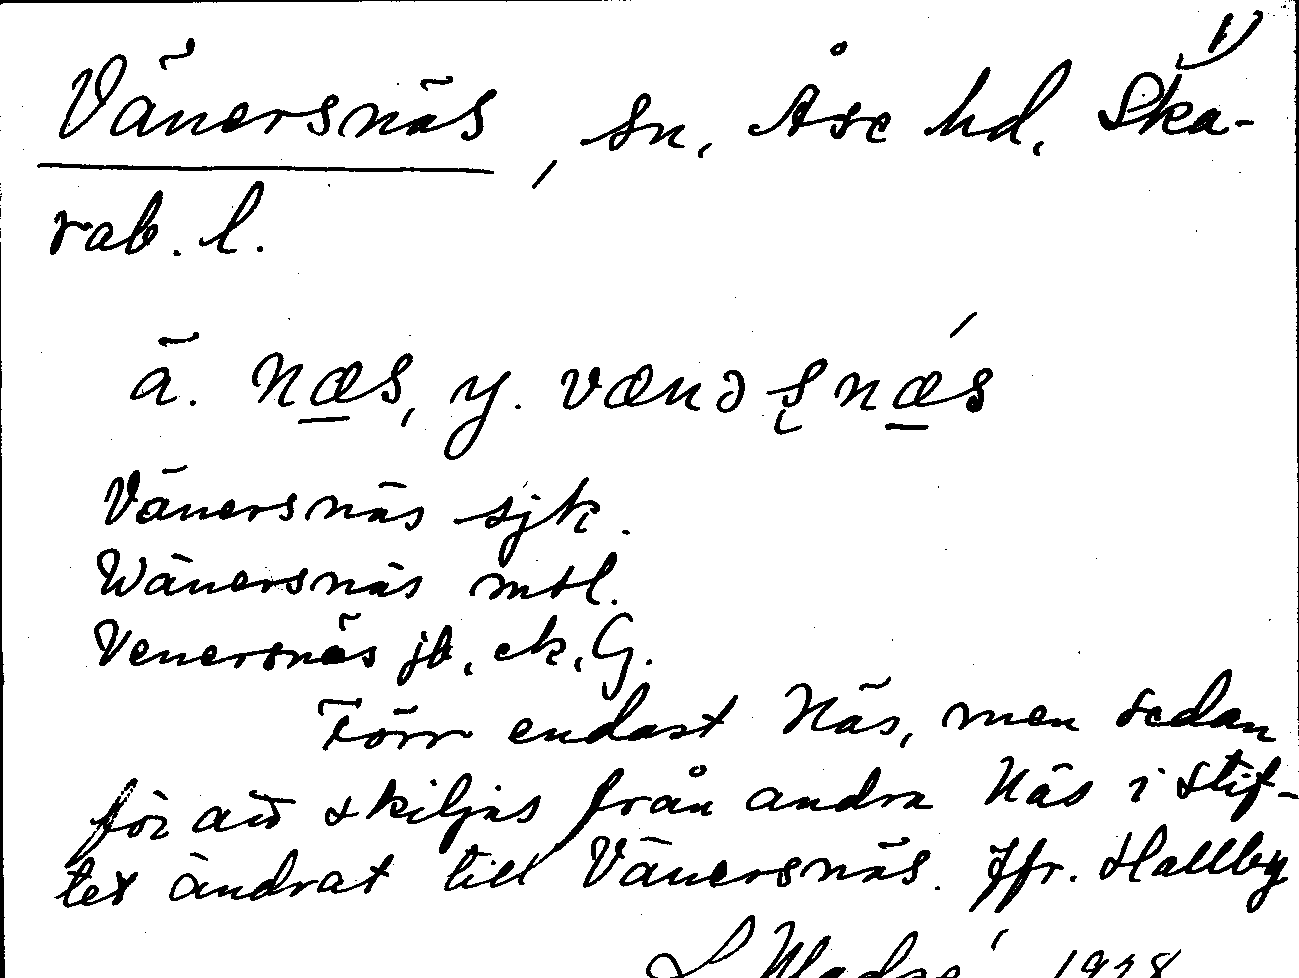 1)
Vänersnäs, sn. Åse hd. Ska-
rab. l.
ä. næs, y. vænəsnæ´s
Vänersnäs sjk.
Wänersnäs mtl.
Venersnäs jb, ek, G.
Förr endast Näs, men sedan
för att skiljas från andra Näs i stif-
tet ändrat till Vänersnäs. Jfr. Hallby
1928